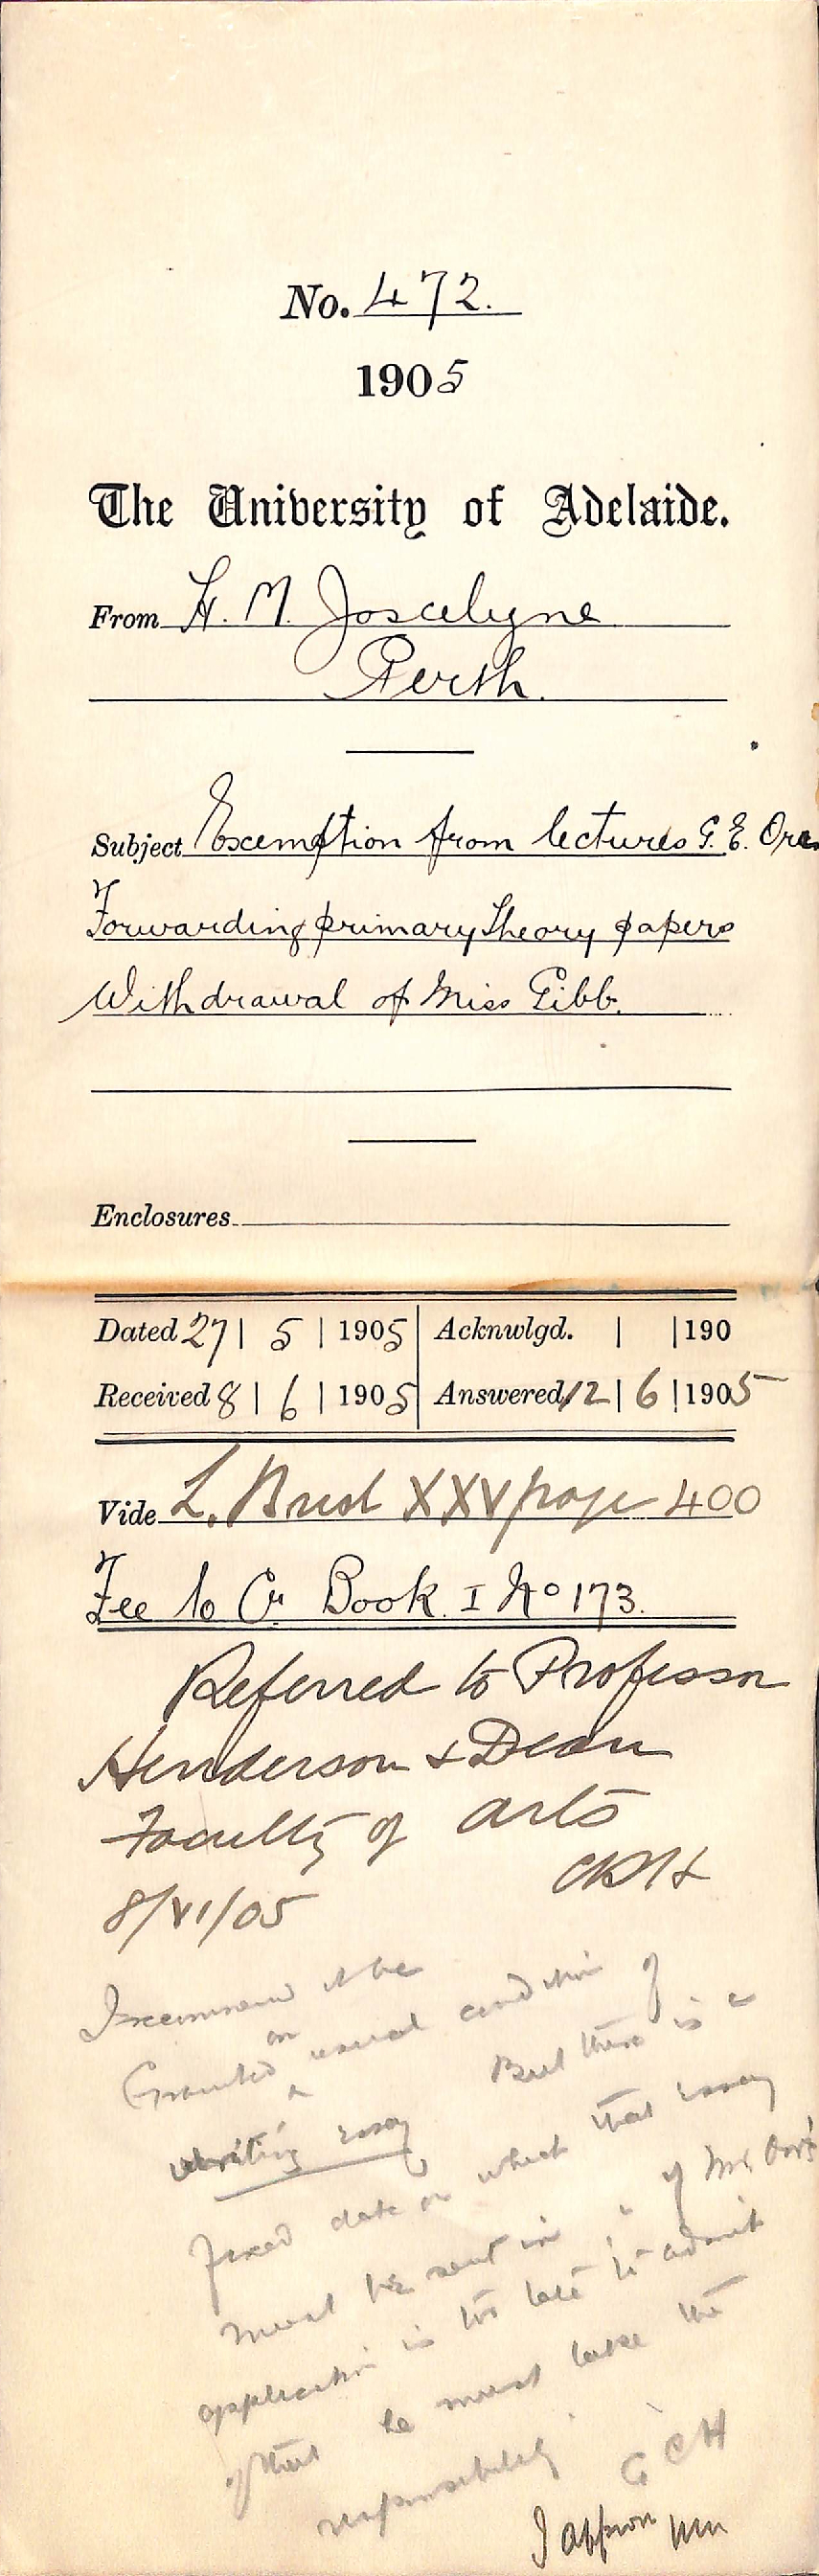 No. 472.
1905
The University of Adelaide.
From H. M. Joscelyne
Perth.
Subject Exemption from lectures G. E.
Forwarding primary Theory papers
Withdrawal of Miss Gibb.
Enclosures
Dated 27 | 5 | 1905 | Acknwlgd. | | 190
Received 8 | 6 | 1905 | Answered 12 | 6 | 1905
Vide L. XXV page 400
Fee to Book I No 173.
Referred to Professor
Henderson & Dean
Faculty of Arts
8/VI/05
I recommend it be
Granted on usual condition of
writing essay But there is a
fixed date on which that essay
must be sent in if Mr
application is too late to admit
of that he must take the
responsibility
G C H
I approve